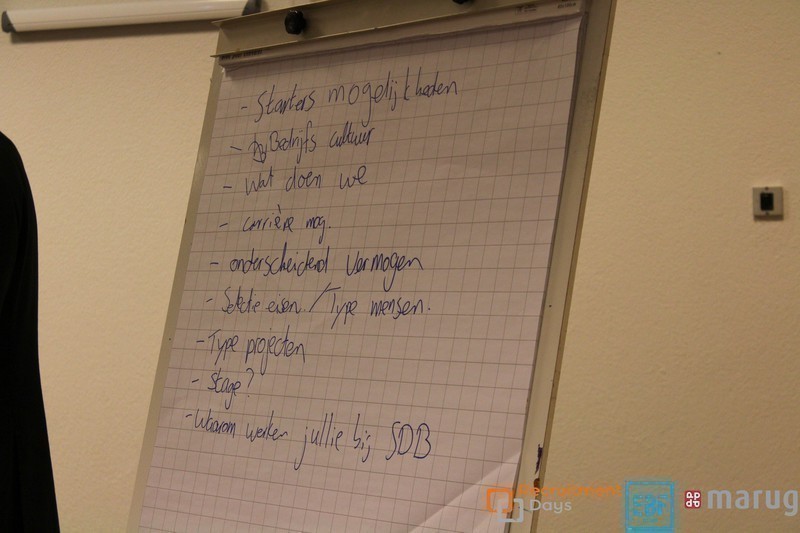 - Starters mogelijkheden
- Bedrijfs cultuur
- Wat doen we
- carrière mog.
- onderscheidend vermogen
- Selectie eisen. / Type mensen.
- Type projecten
- Stage?
- Waarom werken jullie bij SDB
Recruitment
Days
marug